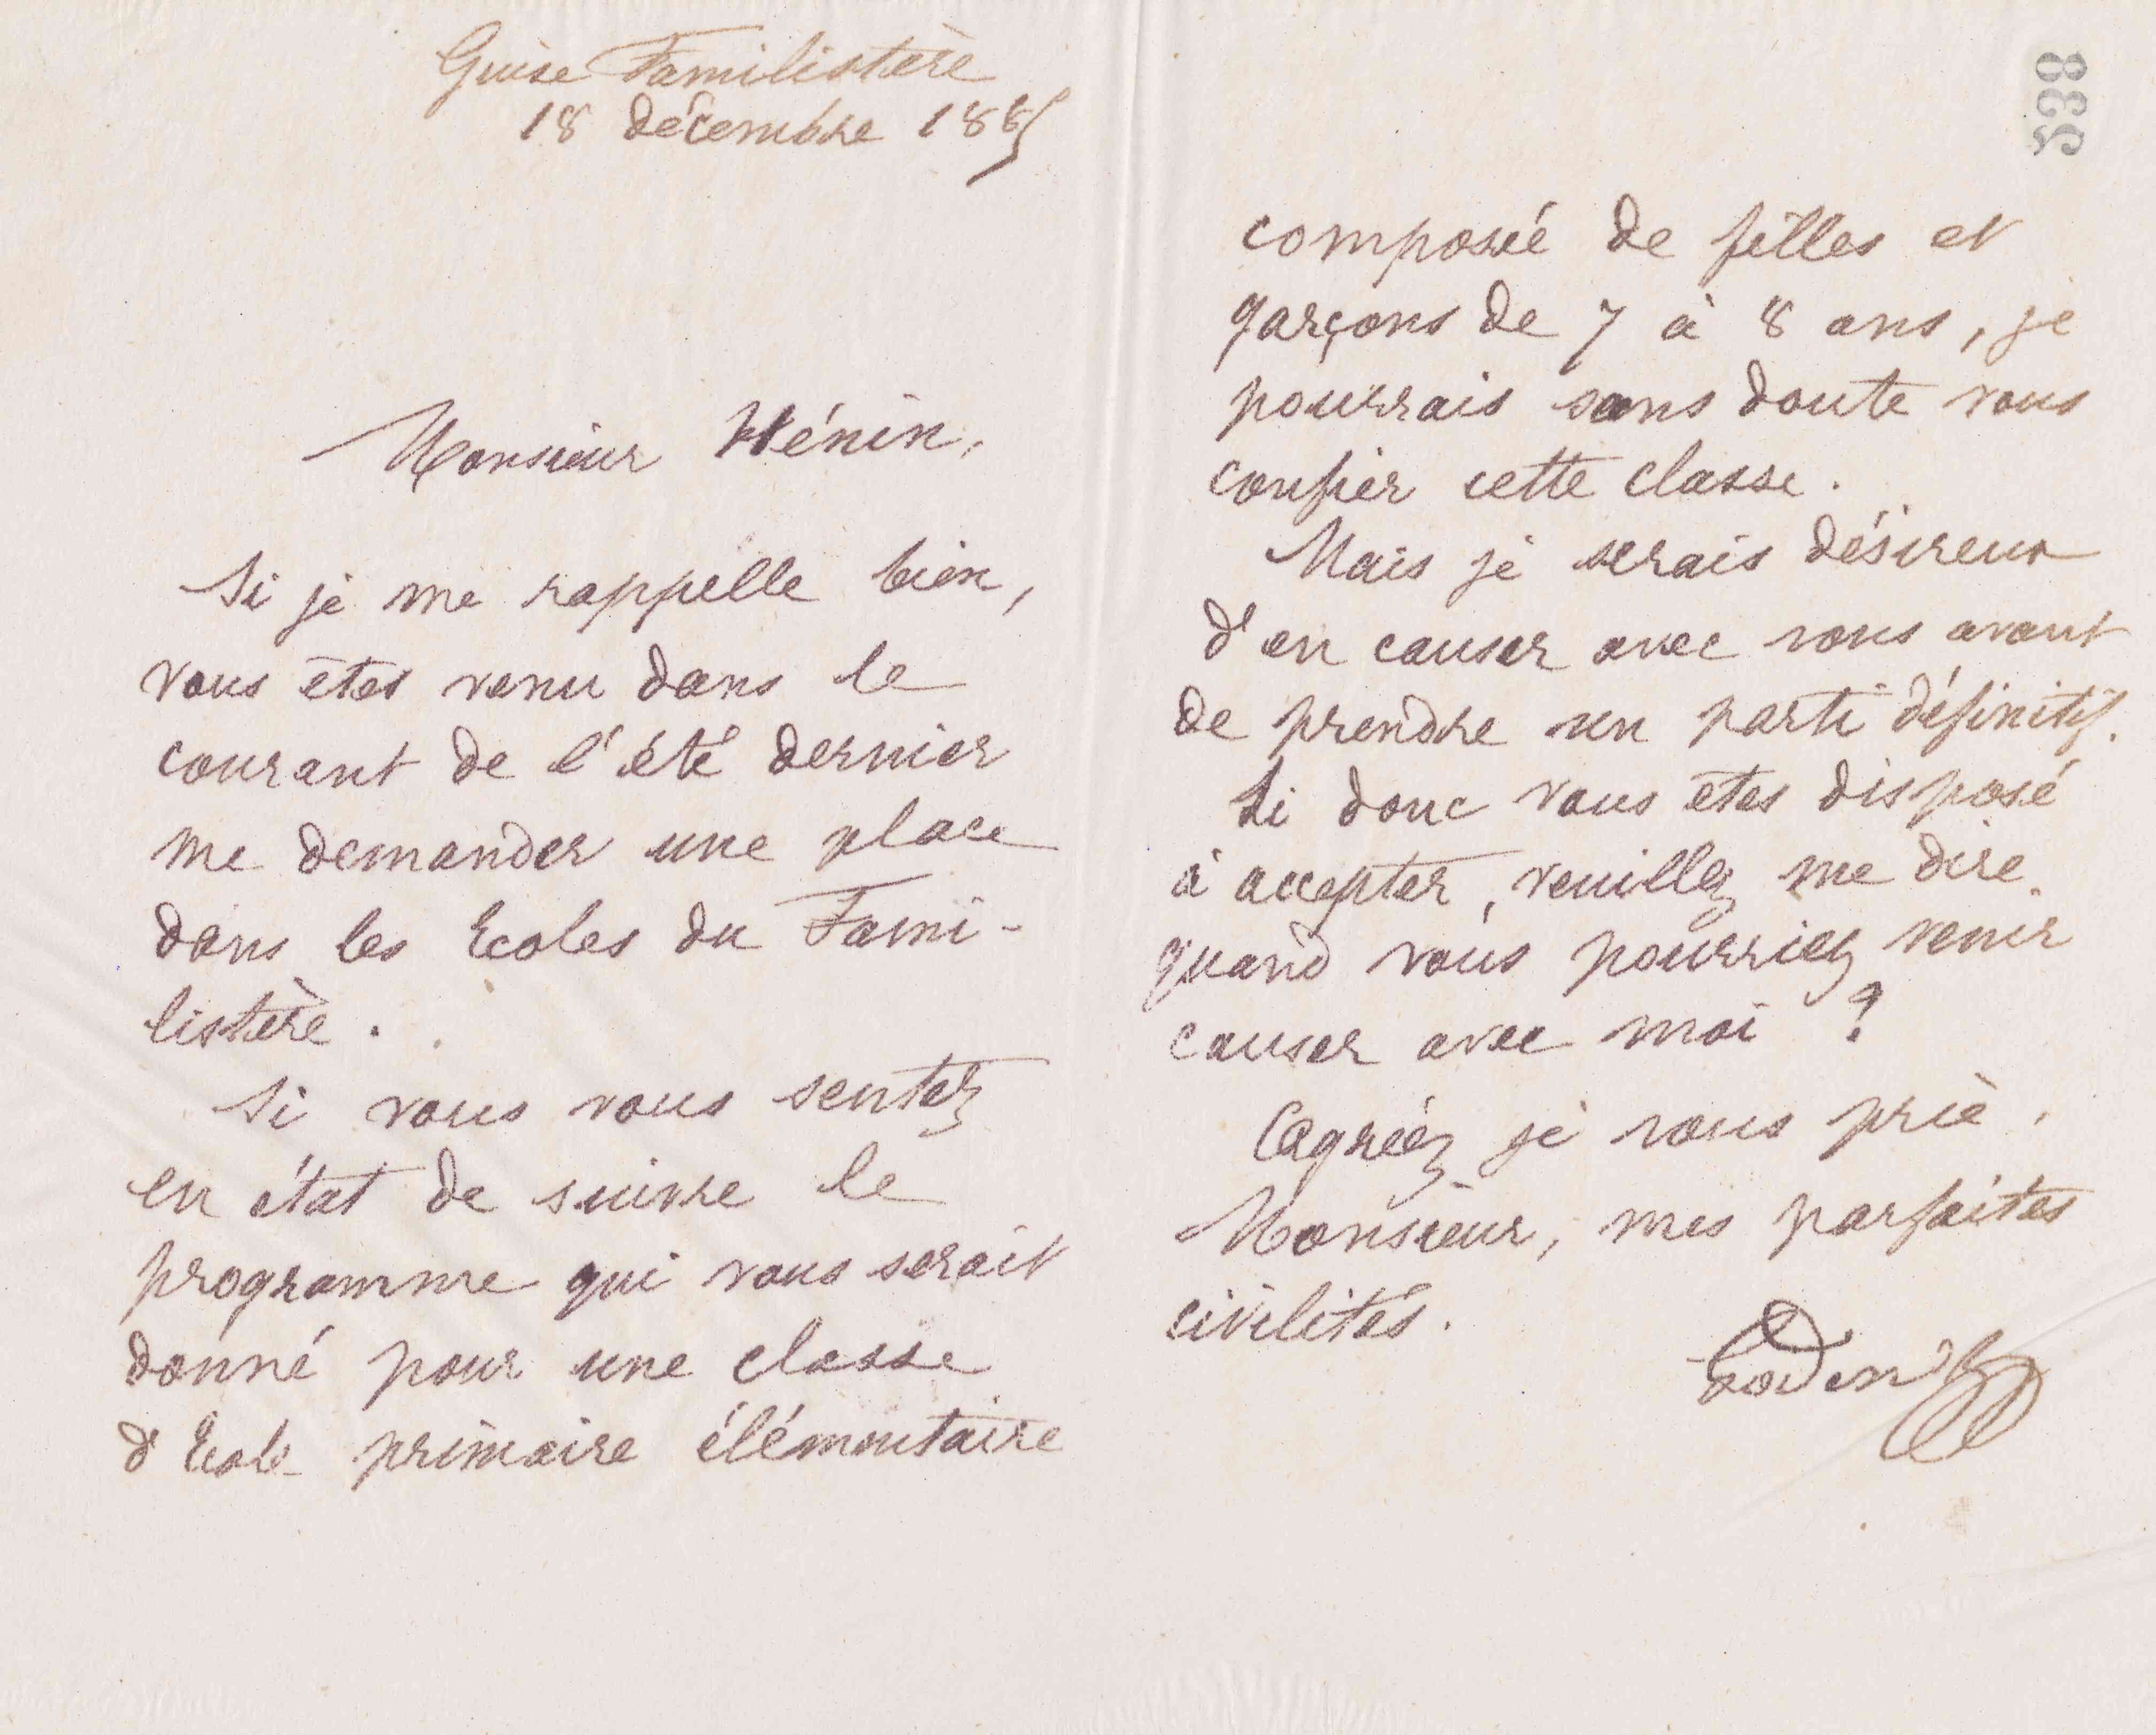 Guise Familistère
18 décembre 1885
Monsieur Hénin,
Si je me rappelle bien,
vous êtes venu dans le
courant de l'été dernier
me demander une place
dans les Ecoles du Fami-
listère.
Si vous vous sentez
en état de suivre le
programme qui vous serait
donné pour une classe
d'Ecole primaire élémentaire
538
composée de filles et
garçons de 7 à 8 ans, je
pourrais sans doute vous
confier cette classe.
Mais je serais désireux
d'en causer avec vous avant
de prendre un parti définitif.
Si donc vous êtes disposé
à accepter, veuillez me dire
quand vous pourriez venir
causer avec moi ?
Agréez je vous prie,
Monsieur, mes parfaites
civilités.
Godin